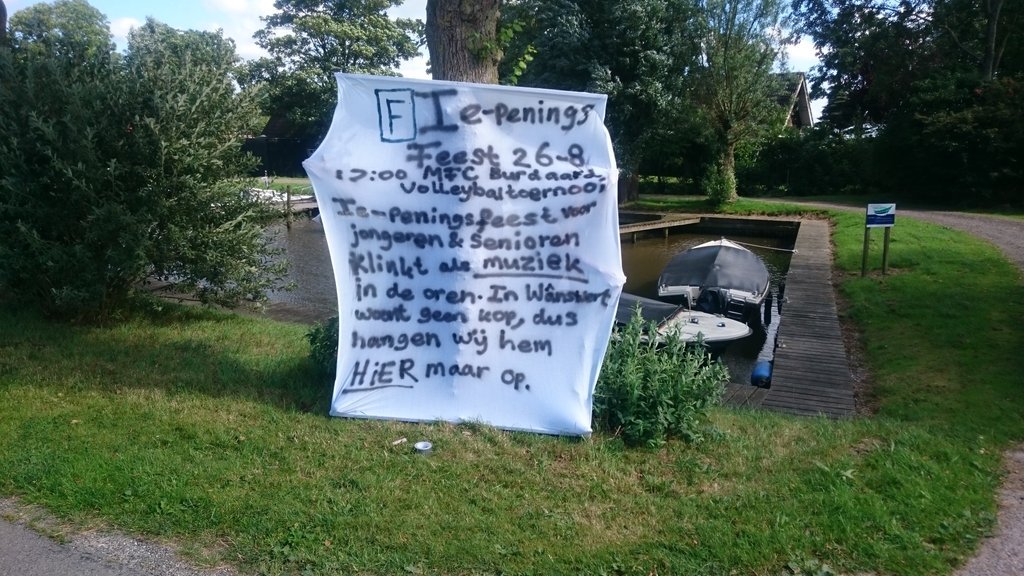 F Ie-penings
Feest 26-8
17:00 MFC Burdaard
Volleybaltoernooi
Ie-peningsfeest voor
jongeren & Senioren
klinkt als muziek
in de oren. In Wânswert
woont geen kop, dus
hangen wij hem
HiER maar op.